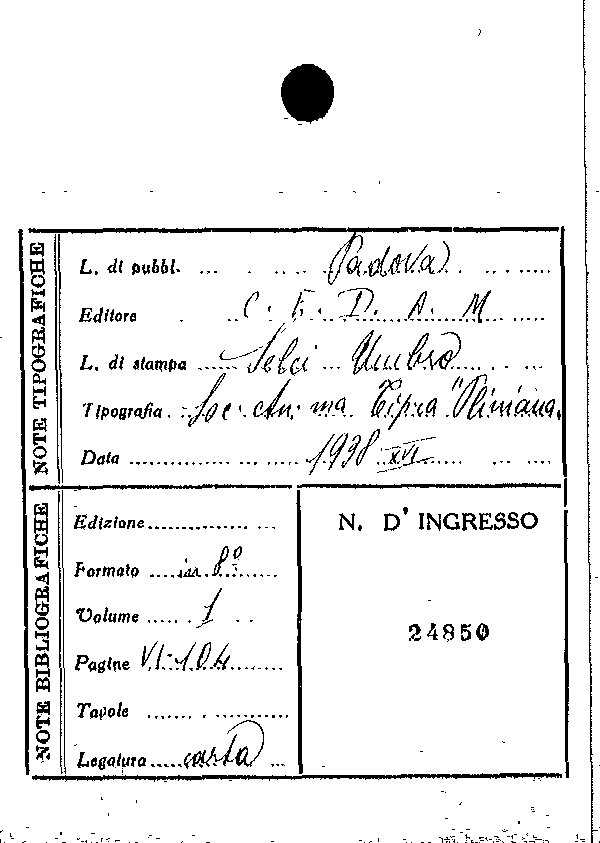 NOTE TIPOGRAFICHE
L. di pubbl. Padova
Editore C. E. D. A. M
L. di stampa Selci Umbro
Tipografia Soc. An. ma Tip.ra "Pliniana.
Data 1938 XVI
NOTE BIBLIOGRAFICHE
Edizione
Formato in 8º
Volume 1
Pagine VI-104
Tavole
Legatura carta
N. D' INGRESSO
24850